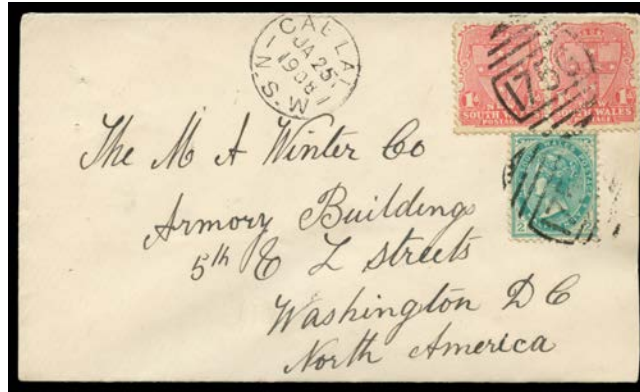 CALLAL
JA 25
1908
N.S.W
1D
SOUTH WALES
POSTAGE
175
The M A Winter Co
Armory Buildings
5th & L Streets
Washington D C
North America